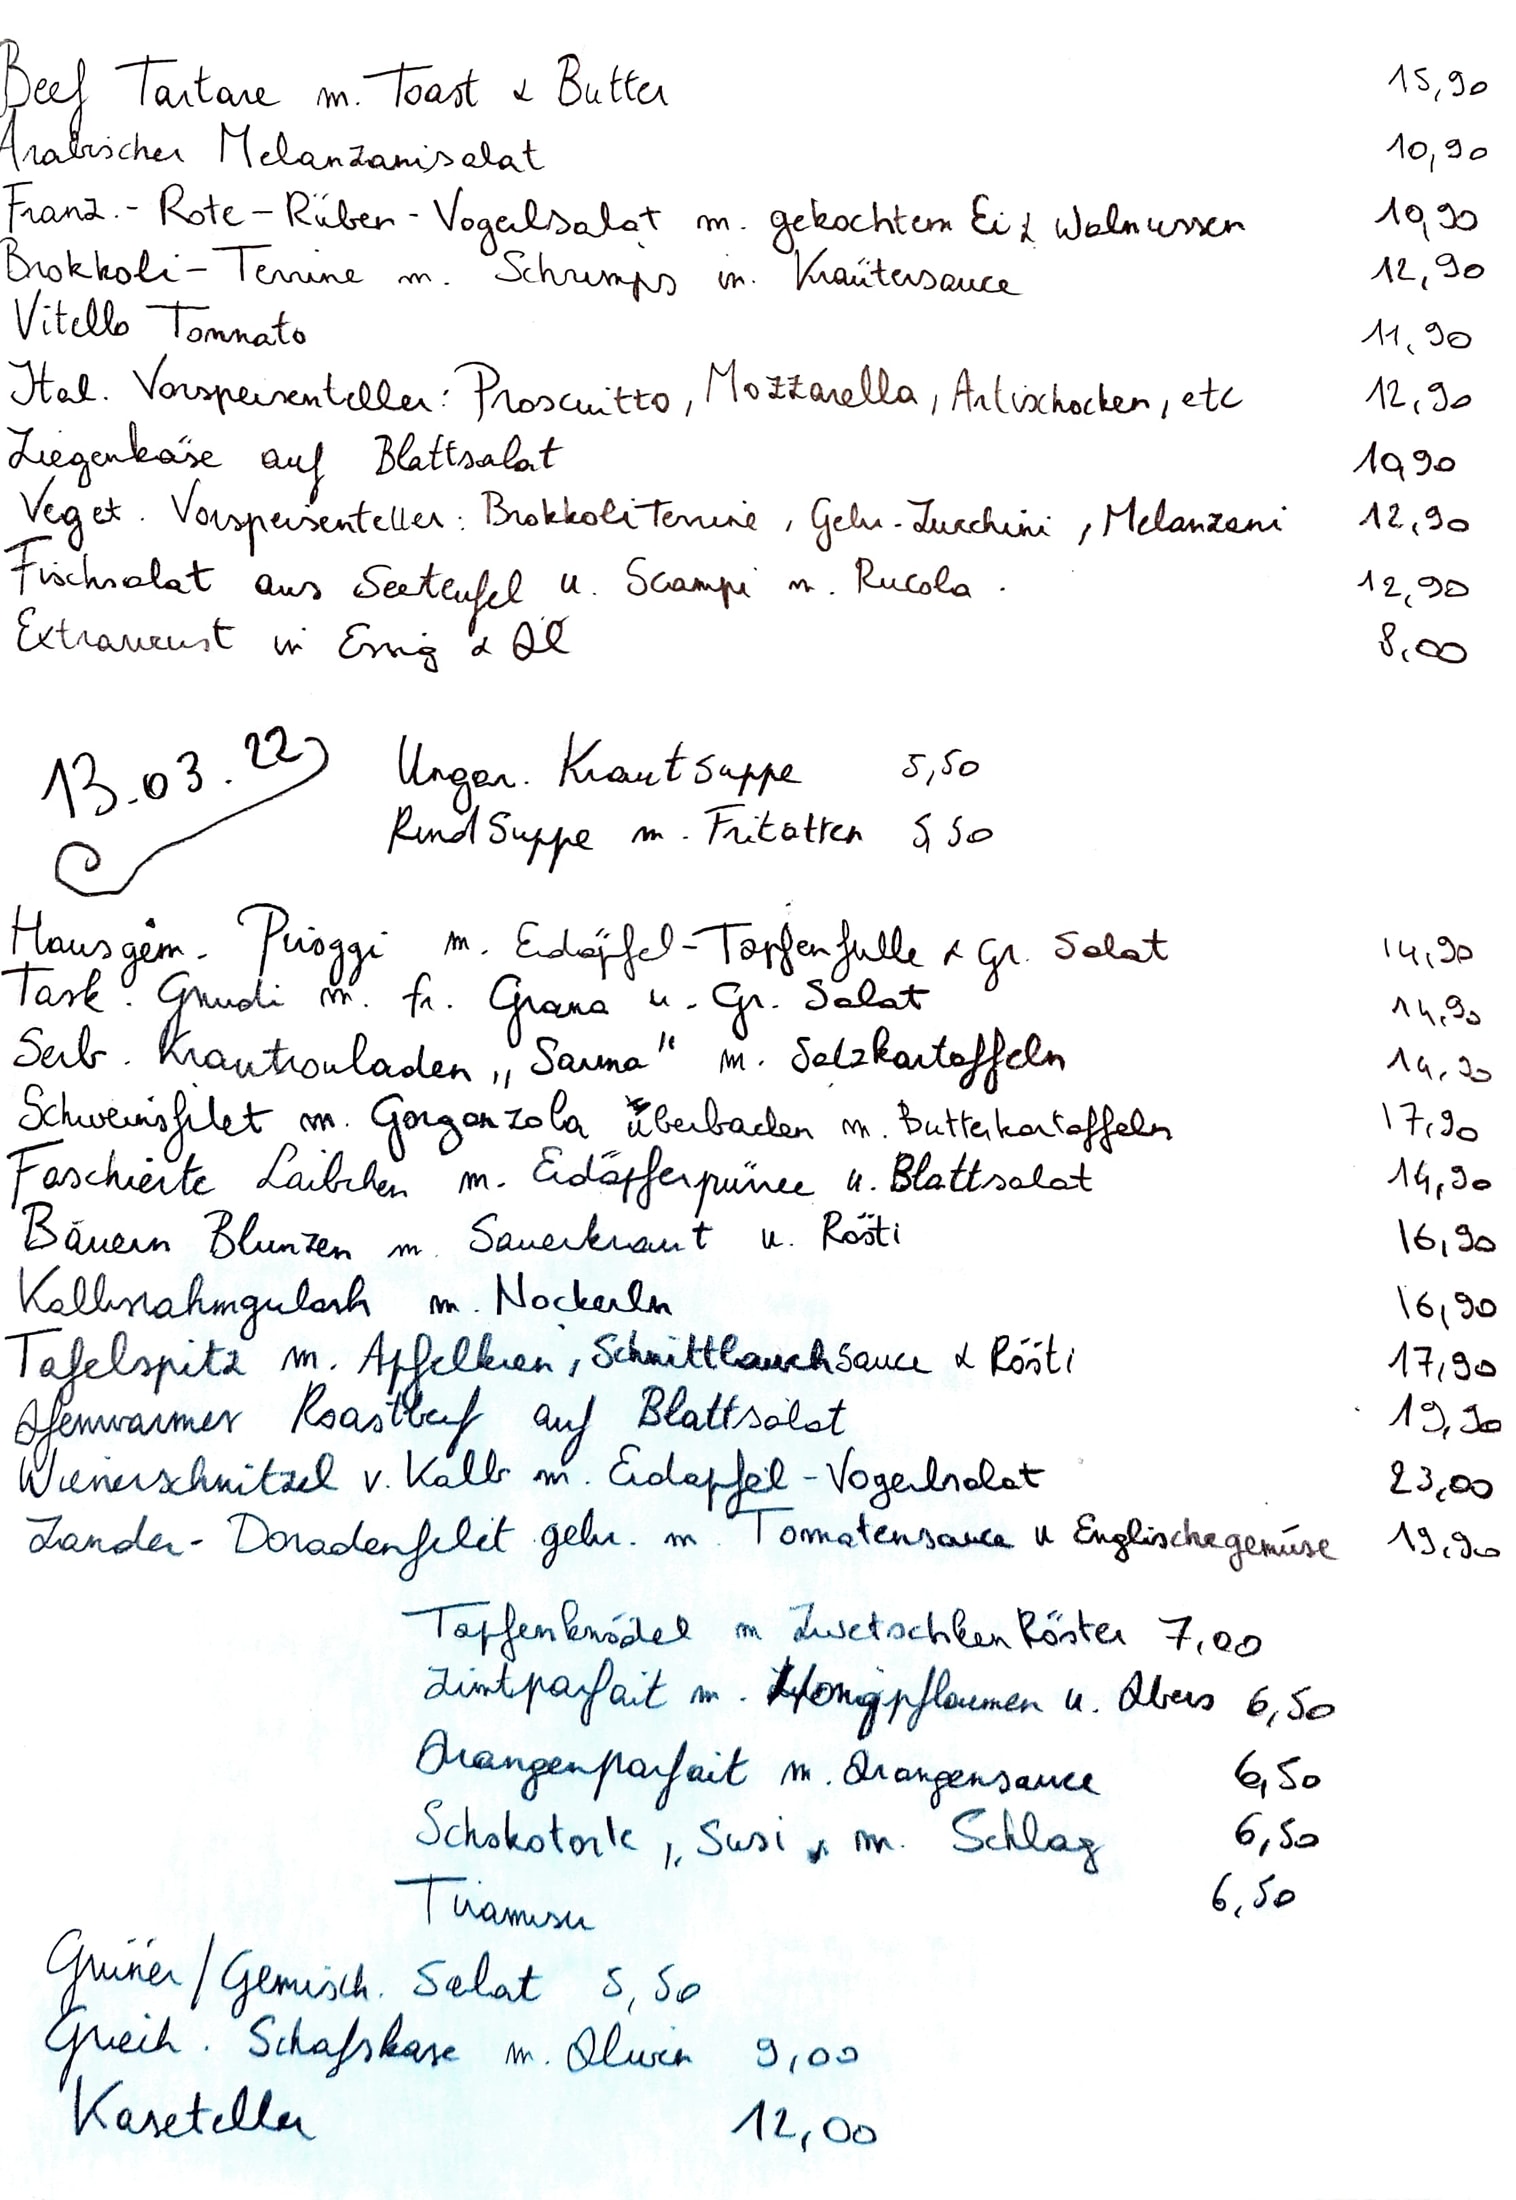 Beef Tartare m. Toast & Butter 15,90
Arabischer Melanzanisalat 10,90
Franz.- Rote-Rüben-Vogerlsalat m. gekochtem Ei & Walnussen 10,90
Brokkoli-Terrine m. Schrimps in Kräutersauce 12,90
Vitello Tonnato 11,90
Ital. Vorspeisenteller: Proscuitto, Mozzarella, Artischocken, etc 12,90
Ziegenkäse auf Blattsalat 10,90
Veget. Vorspeisenteller: Brokkoli Terrine, Gebr-Zucchini, Melanzani 12,90
Fischsalat aus Seeteufel u. Scampi m. Rucola. 12,90
Extrawurst in Essig & Öl 8,00
13.03.22 Ungar. Krautsuppe 5,50
Rindsuppe m. Fritatten 5,50
Hausgem. Piroggi m. Erdäpfel-Topfenfülle & Gr. Salat 14,90
Tosk. Gnudi m. fr. Grana u. Gr. Salat 14,90
Serb. Krautrouladen „Sarma" m. Salzkartoffeln 14,90
Schweinsfilet m. Gorgonzola überbacken m. Butterkartoffeln 17,90
Faschierte Laibchen m. Erdäpferpüree u. Blattsalat 14,90
Bäuern Blunzen m. Sauerkraut u. Rösti 16,90
Kalbsrahmgulash m. Nockerln 16,90
Tafelspitz m. Apfelkren, Schnittlauchsauce & Rösti 17,90
Ofenwarmer Roastbeef auf Blattsalat 19,90
Wienerschnitzel v. Kalb m. Erdapfel-Vogerlsalat 23,00
Zander-Doradenfilet gebr. m. Tomatensauce u Englischegemüse 19,90
Topfenknödel m Zwetschken Röster 7,00
Zimtparfait m. Honigpflaumen u. Obers 6,50
Orangenparfait m. Orangensauce 6,50
Schokotorte „Susi" m. Schlag 6,50
Tiramisu 6,50
Grüner/Gemisch. Salat 5,50
Griech. Schafskäse m. Oliven 9,00
Käseteller 12,00